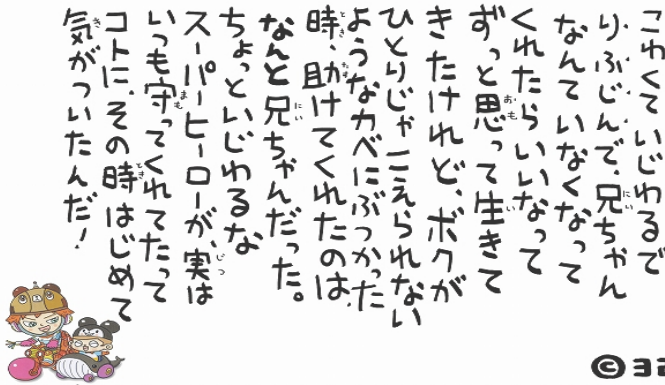 こわくていじわるで
りふじんで、兄ちゃん
なんていなくなって
くれたらいいなって
ずっと思って生きて
きたけれど、ボクが
ひとりじゃこえられない
ようなカベにぶつかった
時、助けてくれたのは、
なんと兄ちゃんだった。
ちょっといじわるな
スーパーヒーローが、実は
いつも守ってくれてたって
コトに、その時はじめて
気がついたんだ！
©